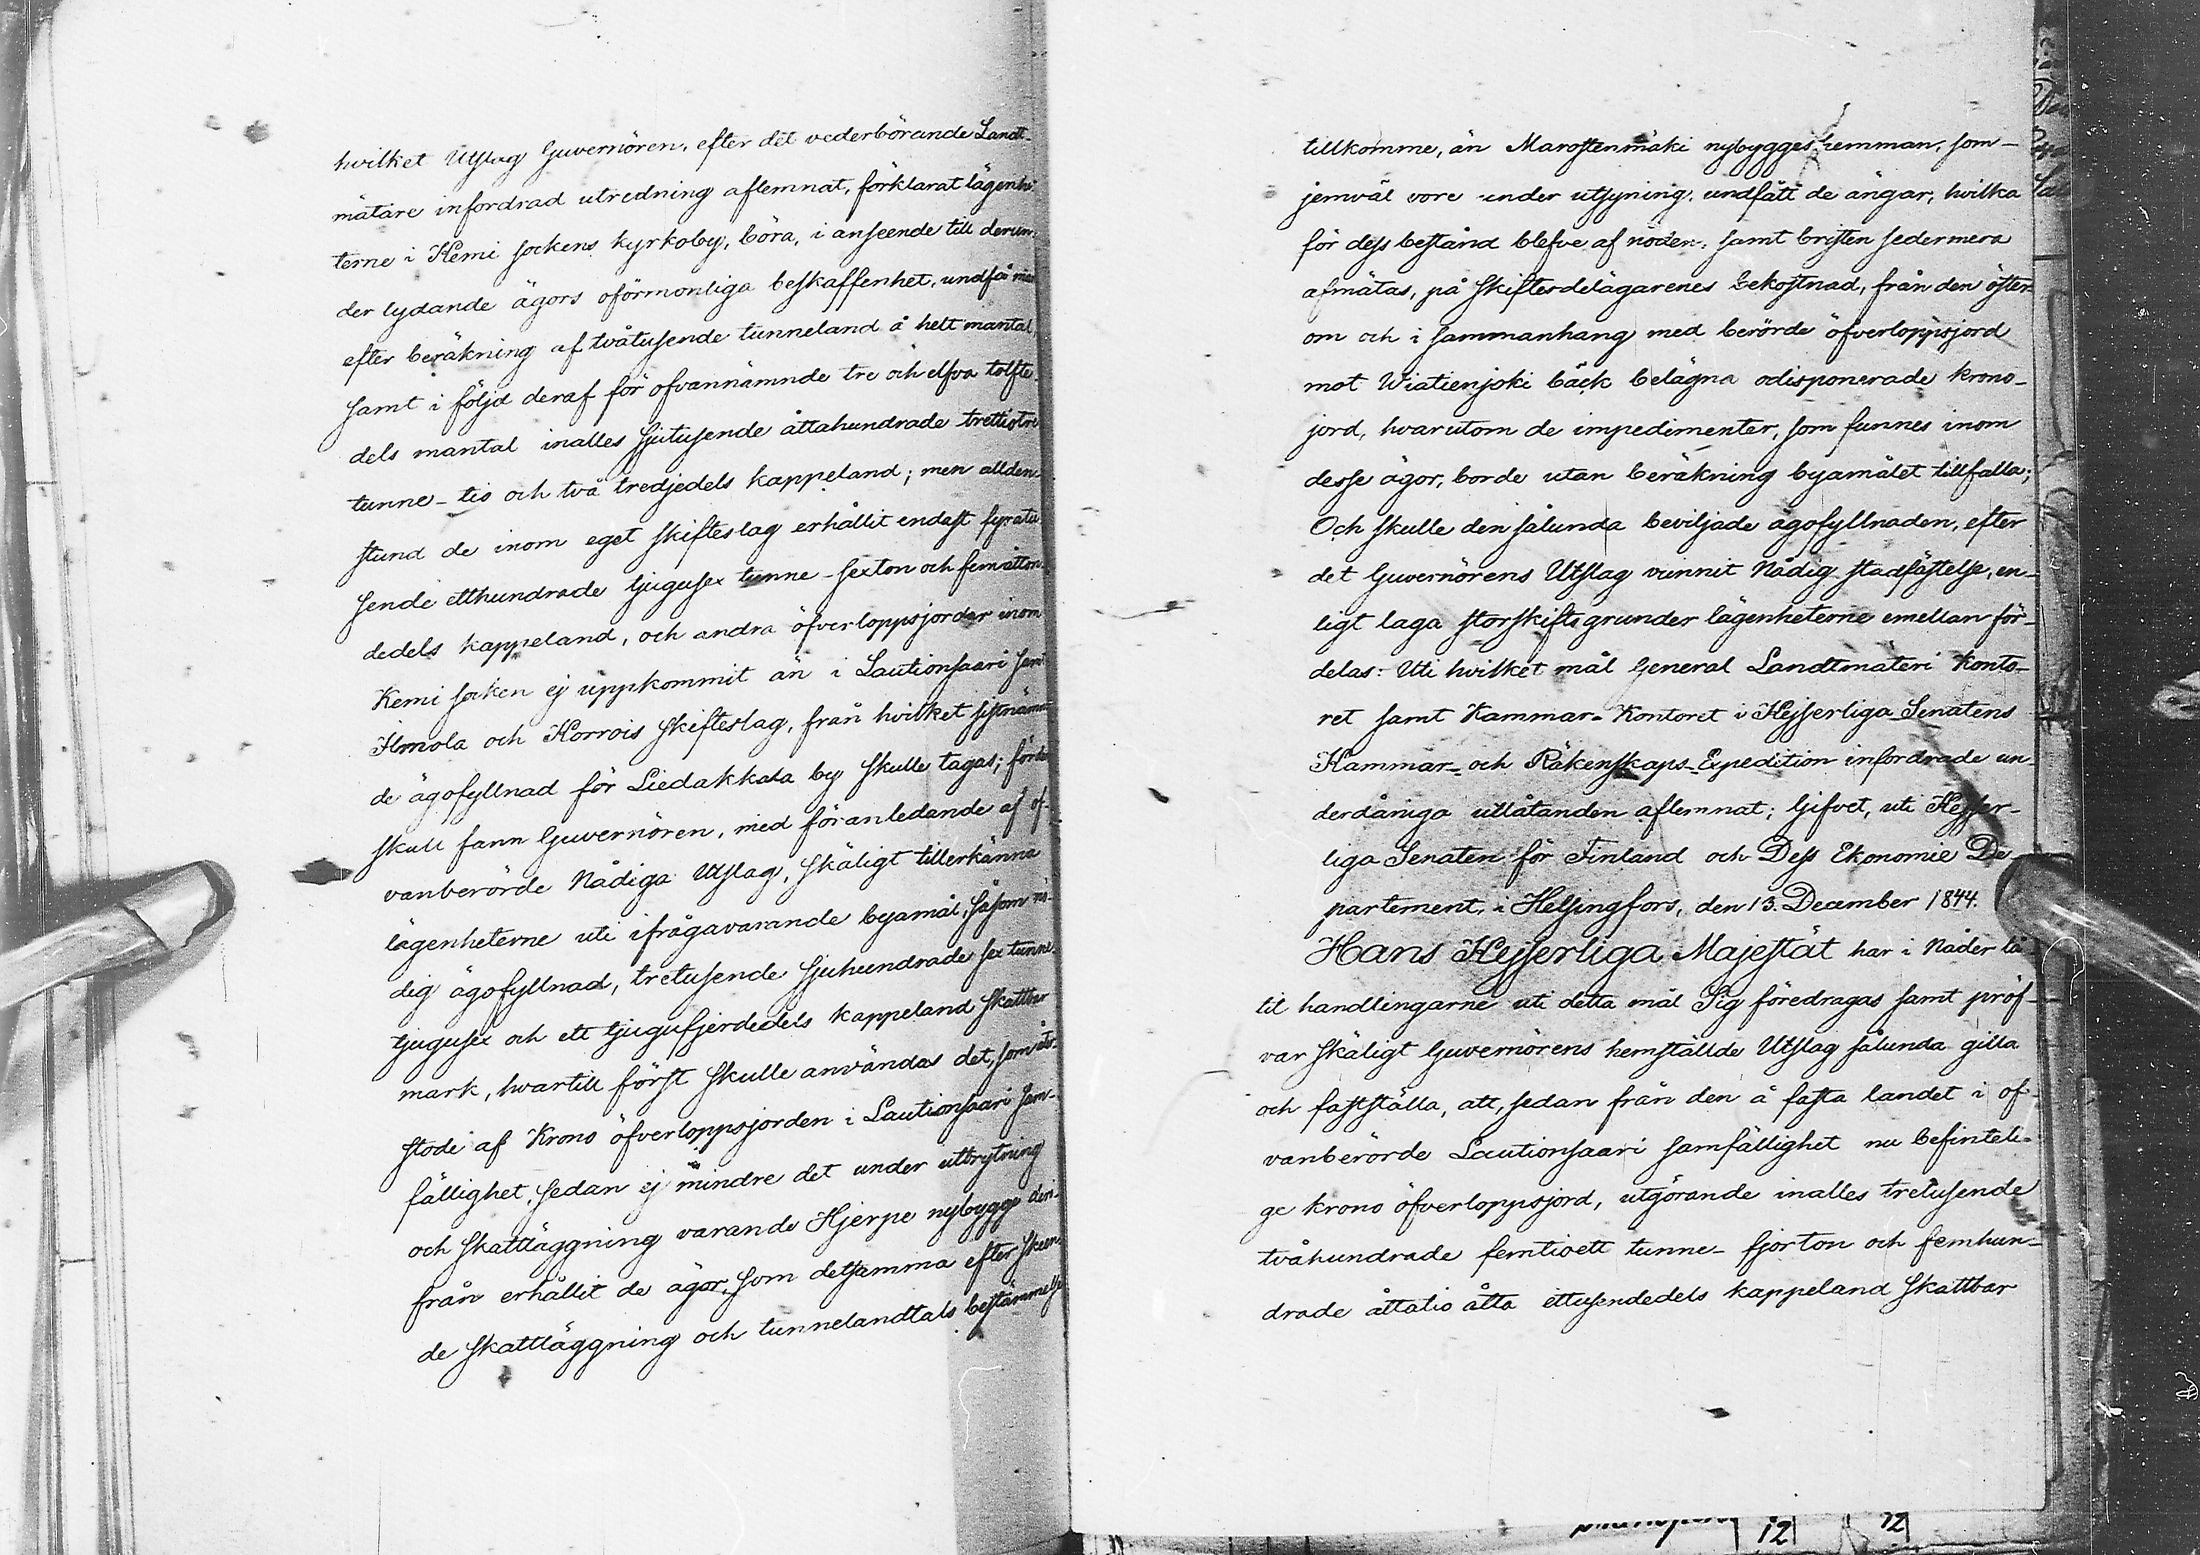 hvilket Utslag Guvernören, efter det vederbörande Landt-
mätare infordrad utredning aflemnat, förklarat lägenhe
terne i Kemi sockens kyrkoby, böra, i anseende till derun-
der lydande ägors oförmonliga beskaffenhet, undfå mark
efter beräkning af tvåtusende tunneland å helt mantal,
samt i följd deraf för ofvannämnde tre och elfva tolfte-
dels mantal inalles sjutusende åttahundrade trettiotre
tunne- tio och två tredjedels kappeland; men allden-
stund de inom eget skifteslag erhållit endast fyratu
sende etthundrade tjugusex tunne- sexton och femåtton-
dedels kappeland, och andra öfverloppsjordar inom
Kemi socken ej uppkommit än i Lautionsaari samt
Ilmola och Korrois skifteslag, från hvilket sistnämn
de ägofyllnad för Liedakkala by skulle tagas; förden
skull fann Guvernören, med föranledande af of-
vanberörde Nådiga Utslag, skäligt tillerkänna
lägenheterne uti ifrågavarande byamål, såsom nå-
dig ägofyllnad, tretusende sjuhundrade sex tunne-
tjugusex och ett tjugufjerdedels kappeland skattbar
mark, hvartill först skulle användas det, som åter-
stode af Krono öfverloppsjorden i Lautionsaari sam-
fällighet, sedan ej mindre det under utbrytning
och skattläggning varande Hjerpe nybygge deri-
från erhållit de ägor, som detsamma efter skeen-
de skattläggning och tunnelandtals bestämmelse
tillkomme, än Marostenmäki nybygges hemman, som-
jemväl vore under utsyning, undfått de ängar, hvilka
för dess bestånd blefve af nöden, samt bristen sedermera
afmätas, på skiftesdelägarenes bekostnad, från den öster-
om och i sammanhang med berörde öfverloppsjord
mot Wiatienjoki bäck belägna odisponerade krono-
jord, hvarutom de impedimenter, som funnes inom
desse ägor, borde utan beräkning byamålet tillfalla;
Och skulle den sålunda beviljade ägofyllnaden, efter
det Guvernörens Utslag vunnit Nådig stadfästelse, en-
ligt laga storskifts grunder lägenheterne emellan för-
delas: Uti hvilket mål General Landtmäteri Konto-
ret samt Kammar-Kontoret i Kejserliga Senatens
Kammar- och Räkenskaps-Expedition infordrade un-
derdåniga utlåtanden aflemnat; Gifvet, uti Kejser-
liga Senaten för Finland och Dess Ekonomie De
partement, i Helsingfors, den 13. December 1844.
Hans Kejserliga Majestät har i Nåder lå-
tit handlingarne uti detta mål Sig föredragas samt pröf-
var skäligt Guvernörens hemställde Utslag sålunda gilla
och fastställa, att, sedan från den å fasta landet i of-
vanberörde Lautionsaari samfällighet nu befinteli-
ge krono öfverloppsjord, utgörande inalles tretusende
tvåhundrade femtioett tunne- fjorton och femhun-
drade åttatio åtta ettusendedels kappeland skattbar
12 12